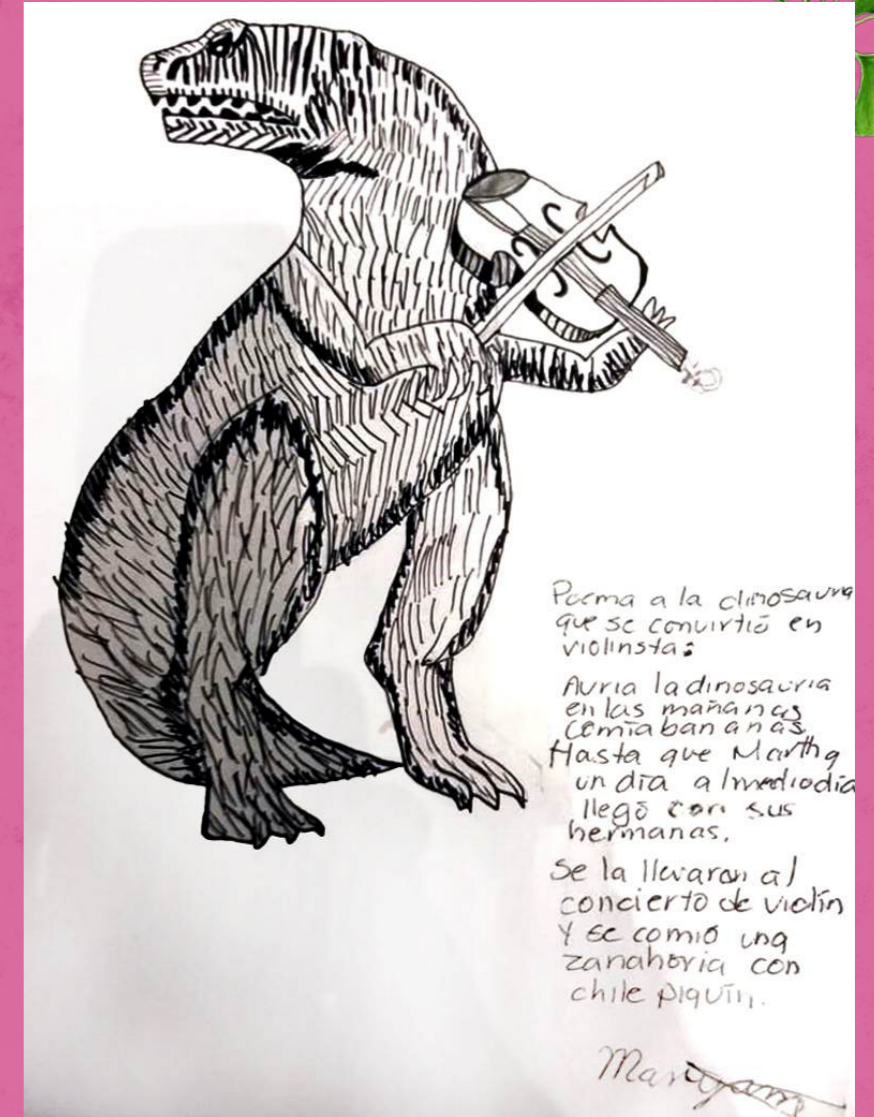 Poema a la dinosauria
que se convirtió en
violinsta:
Auria la dinosauria
en las mañanas
comia bananas
Hasta que Martha
un día al mediodía
llegó con sus
hermanas.
Se la llevaron al
concierto de violín
y se comió una
zanahoria con
chile piquín.
Mariyam